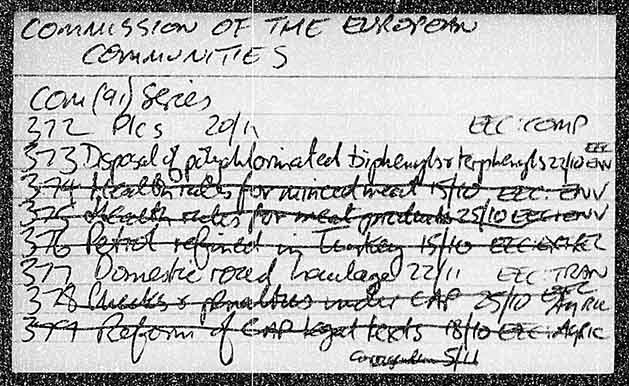 COMMISSION OF THE EUROPEAN
COMMUNITIES
COM(91) Series
372 PLCs 20/11 EEC:COMP
EEC
373 Disposal of polychlorinated biphenyls & terphenyls 22/10 ENV
374 Health rules for minced meat 15/10 EEC:ENV
375 Health rules for meat products 25/10 EEC:ENV
376 Petrol refined in Turkey 15/10 EEC:EXREL
377 Domestic road haulage 22/11 EEC:TRAN
EEC
378 Checks & penalties under CAP 25/10 AGRIC
379 Reform of CAP legal texts 18/10 EEC:AGRIC
Corrigendum 5/11